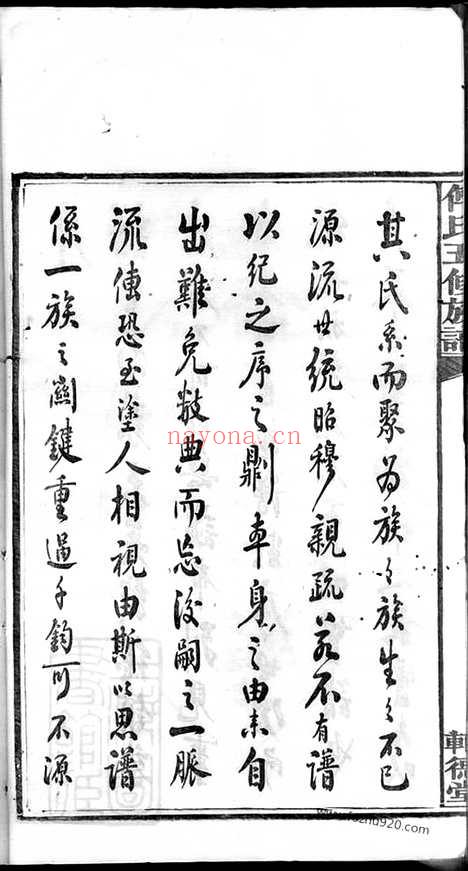 氏五修族譜
德堂
其氏系而聚为族々族生々不已
源流世統昭穆親疏若不有譜
以纪之序之則本身之由来自
出難免數典而忘後嗣之一脈
流傳恐至塗人相視由斯以思譜
係一族之關鍵重過千鈞可不源
nayona.cn
www.fozhu920.com